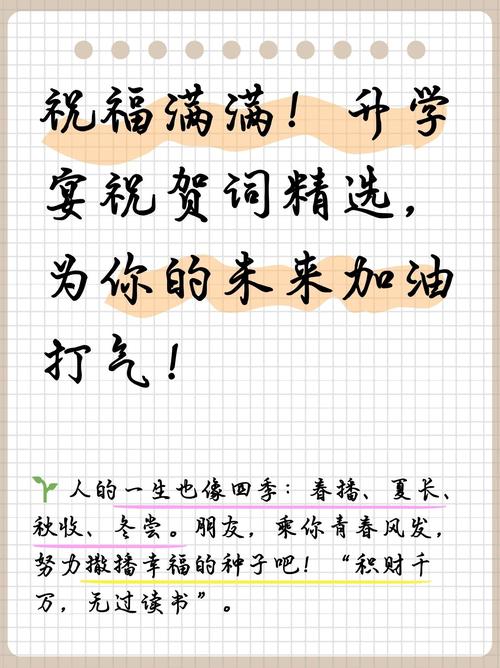 祝福满满！升学
宴祝贺词精选，
为你的未来加油
打气！
人的一生也像四季：春播、夏长、
秋收、冬尝。朋友，乘你青春风发，
努力撒播幸福的种子吧！“积财千
万，无过读书”。